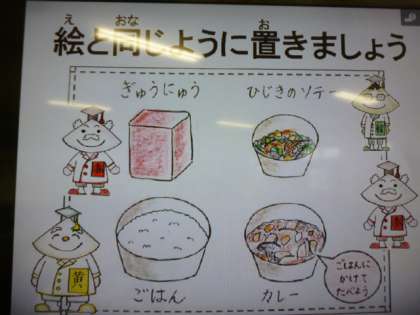 絵と同じように置きましょう
ぎゅうにゅう
ひじきのソテー
ごはん
カレー
ごはんに
かけて
たべよう
黄